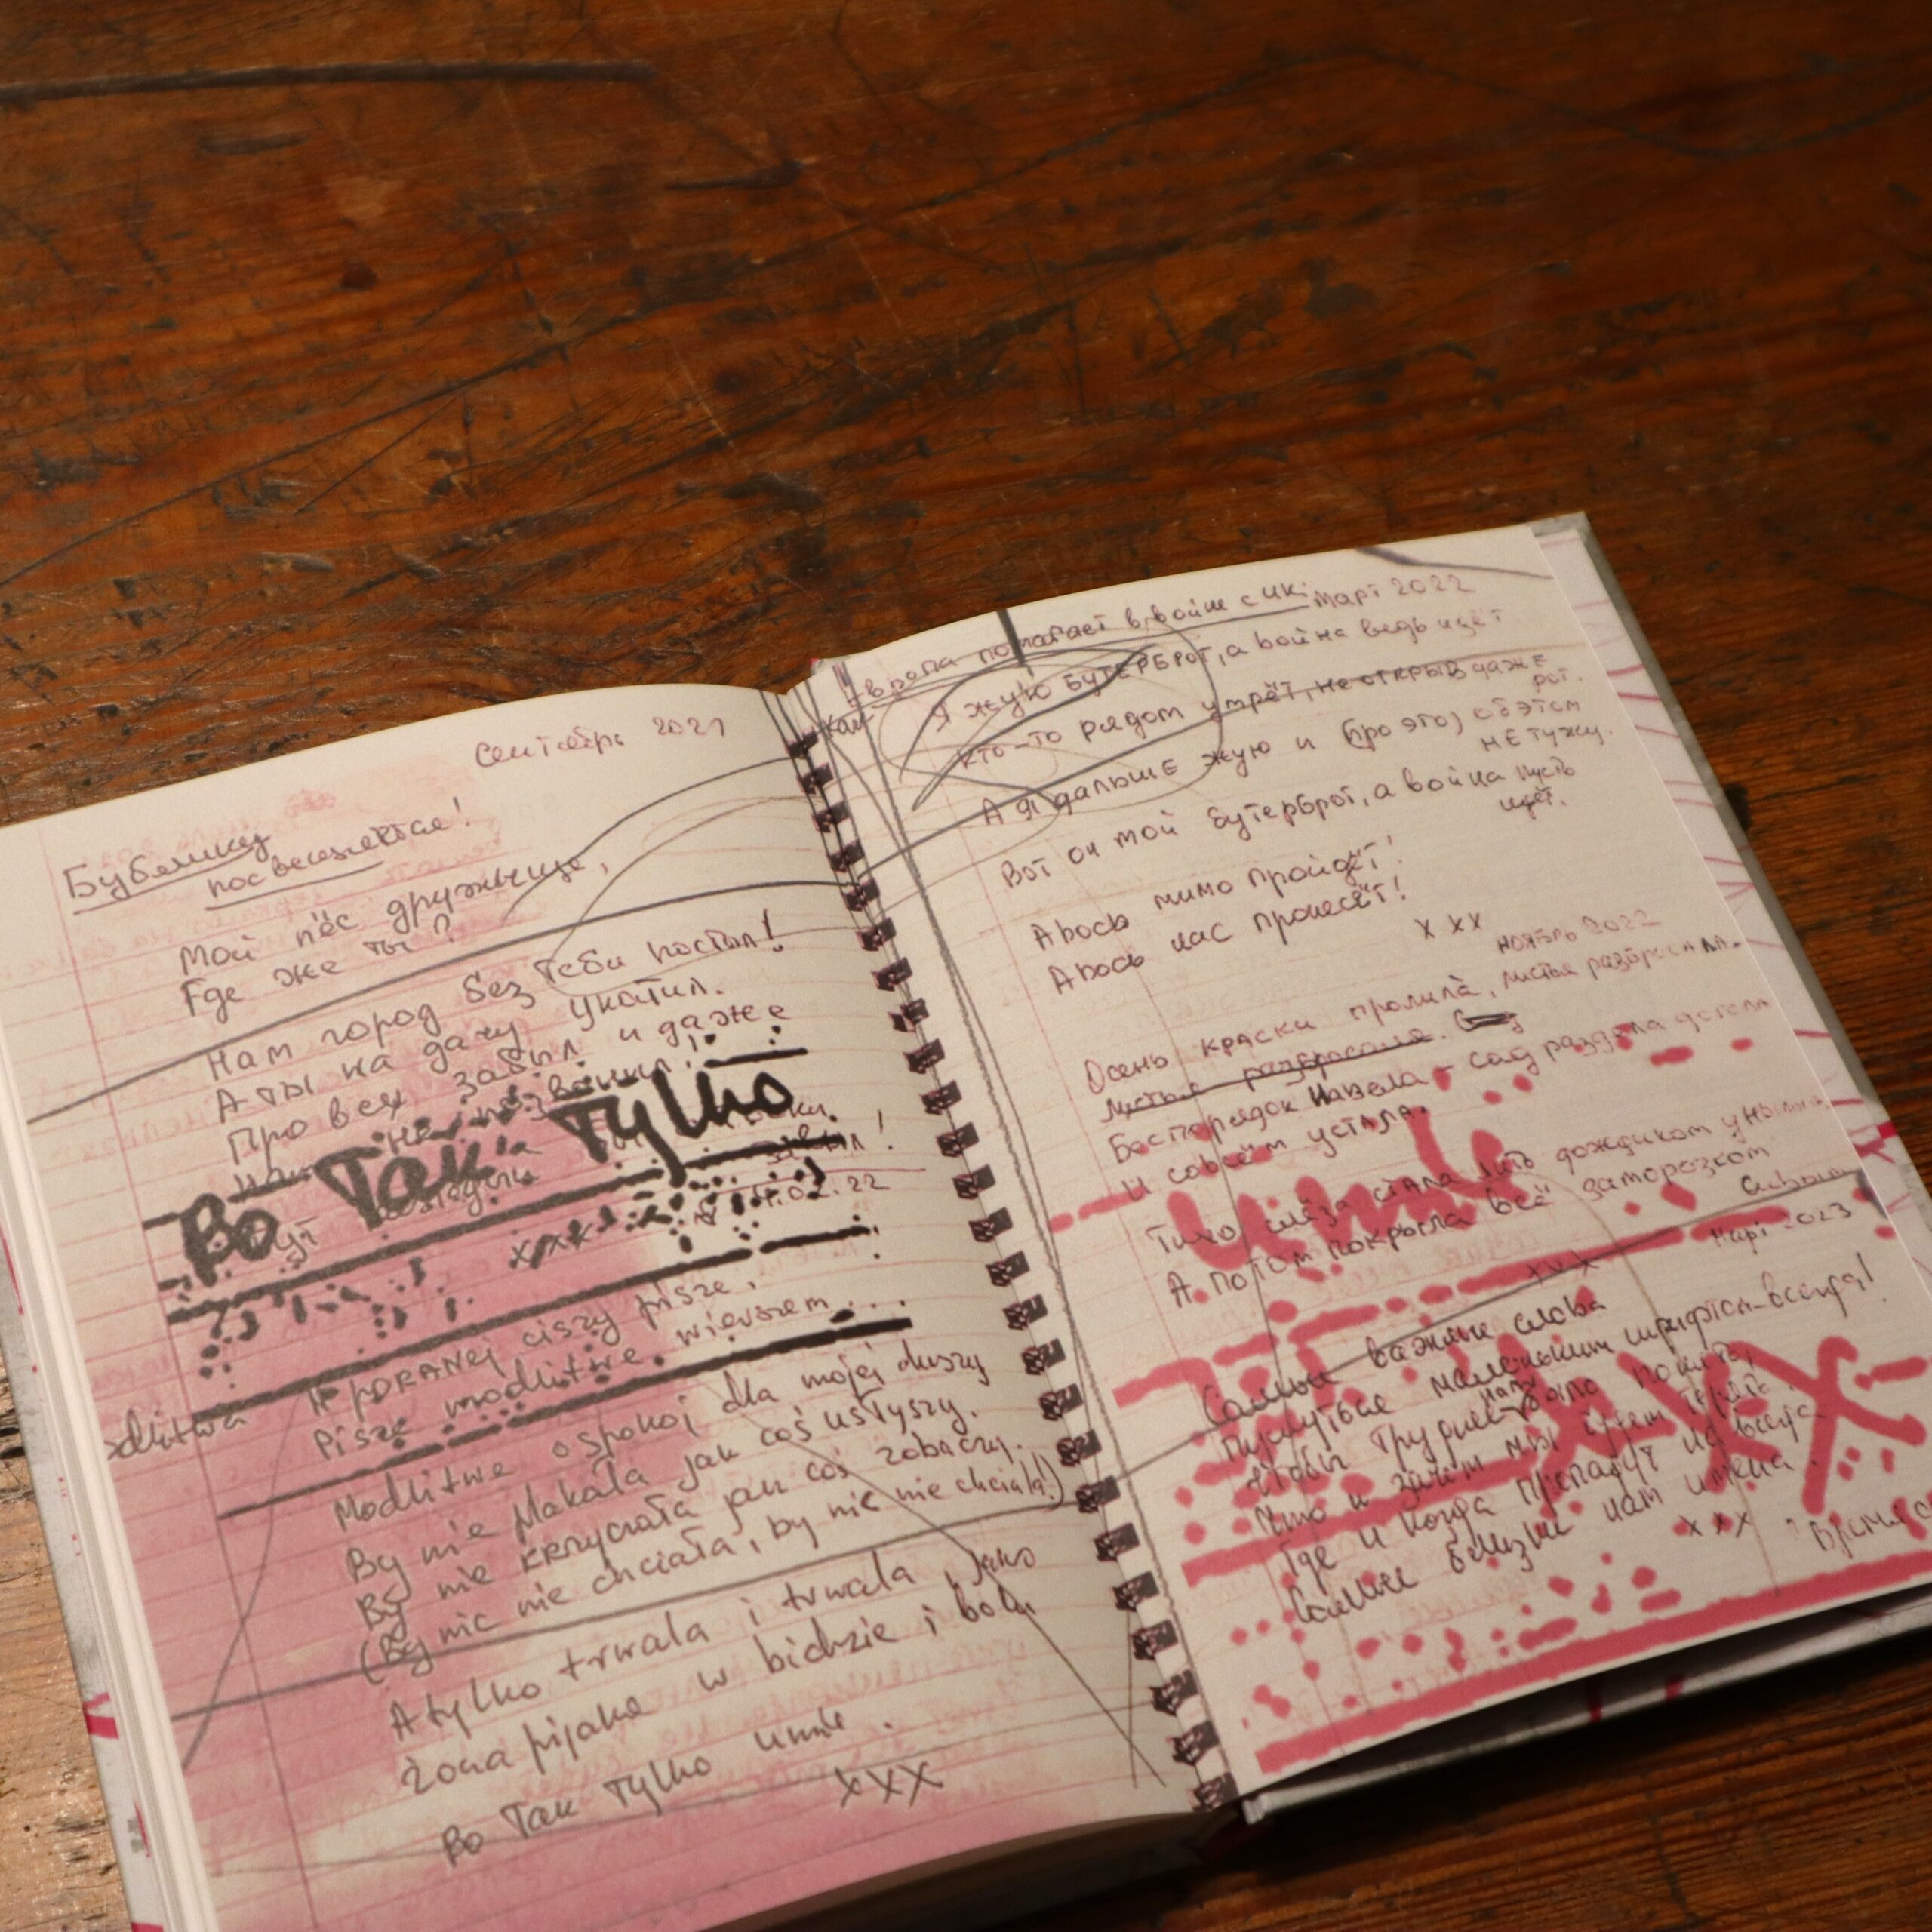 Сентябрь 2021
Бублику
посвещается!
Мой пёс дружьище,
Где же ты?
Нам город без тебя постыл!
А ты на дачу укатил.
Про всех забыл и даже
Bo Tak Tylko
xxx
.02.22
W poranej ciszy pisze.
Pisze modlitwe wierszem...
Modlitwe o spokoj dla mojej duszy
By nie płakała jak coś usłyszy.
By nie krzyczała jak coś zobaczy.
(By nic nie chciała, by nic nie chciała!)
A tylko trwala i trwala, jako
żona pijaka w bidzie i bolu
Bo Tak Tylko umie.
xxx
Как Европа помогает в войне с UK: Март 2022
Я жую БУТЕРБРОТ, а война ведь идёт
Кто-то рядом умрёт, не открыв даже
рот.
А я дальше жую и (про это) об этом
НЕ тужу.
Вот он мой бутерброт, а война пусть
идёт.
Авось мимо пройдёт!
Авось нас пронесёт!
x x x
ноябрь 2022
Осень краски пролила, листья разбросала.
листья разбросала.
Беспорядок навела - сад раздела догола
И совсем устала.
umie
Тихо слёза стала лить дождиком унылым,
А потом покрыла всё заморозком
xxx
Март 2023
Самые важные слова
маленьким шрифтом всегда!
Чтобы труднее нам было понять,
Что и зачем мы будем терять.
Где и когда пропадут навсегда
Самые близкие нам имена.
XXX
xxx